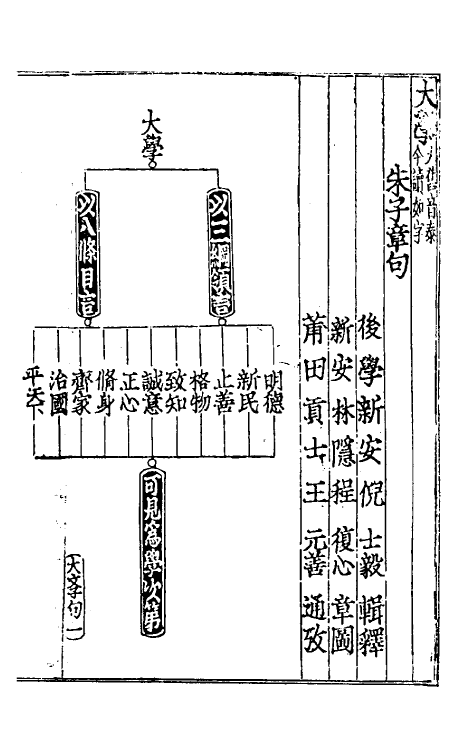 大學大舊音泰
今讀如字
朱子章句
後學新安倪士毅輯釋
新安林隱程復心章圖
莆田貢士王元善通攷
大學
以三綱領言
以八條目言
明德
新民
止善
格物
致知
誠意
正心
脩身
齊家
治國
平天下
可見為學次第
大文字句一